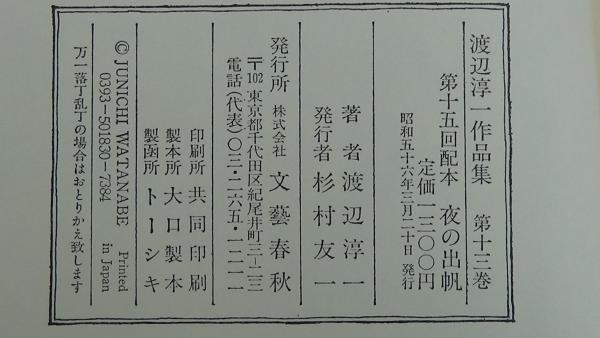 渡辺淳一作品集　第十三巻
第十五回配本　夜の出帆
定価一三〇〇円
昭和五十六年三月二十日　発行
著者　渡辺淳一
発行者　杉村友一
発行所　株式会社　文藝春秋
〒102 東京都千代田区紀尾井町三―二三
電話(代表)〇三・二六五・一二一一
印刷所　共同印刷
製本所　大口製本
製函所　トーシキ
© JUNICHI WATANABE　Printed in Japan
0393―501830―7384
万一落丁乱丁の場合はおとりかえ致します